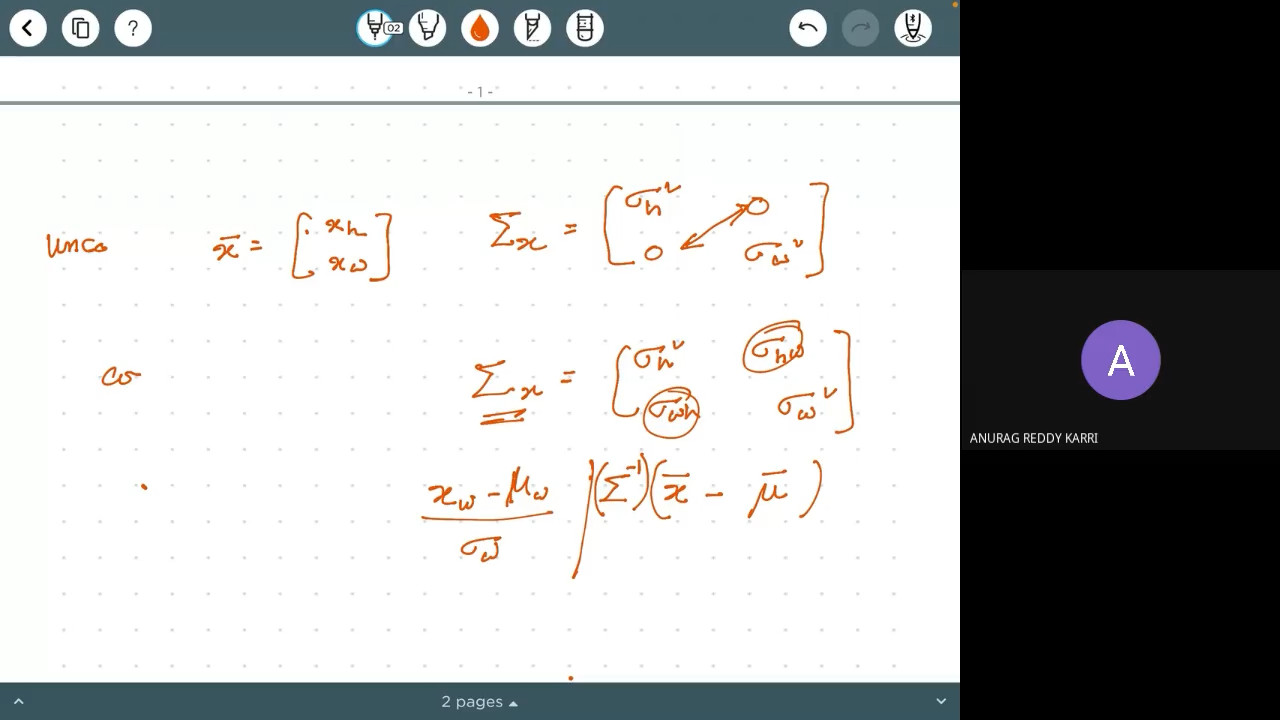 02
- 1 -
unco x̄ = [ x_h x_w ] Σ_x = [ σ_h² 0 0 σ_w² ]
co Σ_x = [ σ_h² σ_hw σ_wh σ_w² ]
x_w - μ_w / σ_w | (Σ⁻¹)(x̄ - μ̄)
A
ANURAG REDDY KARRI
2 pages